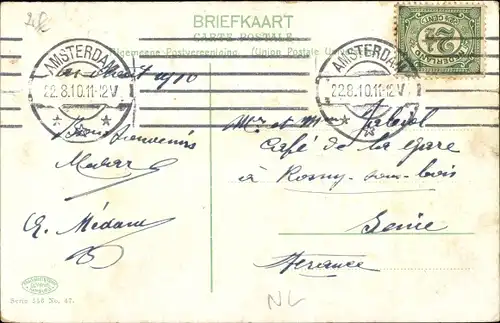 BRIEFKAART
CARTE POSTALE
Algemeene Postvereeniging. (Union Postale
AMSTERDAM
22.8.10.11-12V
AMSTERDAM
22.8.10.11-12V
NEDERLAND
2½
CENT
1910
Bons Souvenirs
Medard
E. Médard
Mr et Mme
Café de la Gare
à Rosny-sous-bois
Seine
France
NL
Serie 156 No. 47.